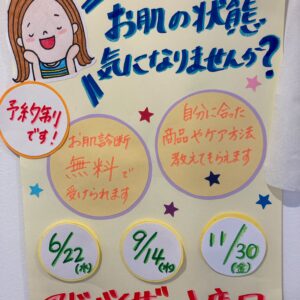 お肌の状態
気になりませんか?
予約制り
です!
お肌診断
無料で
受けられます
自分に合った
商品やケア方法
教えてもらえます
6/22
(水)
9/14
(水)
11/30
(金)